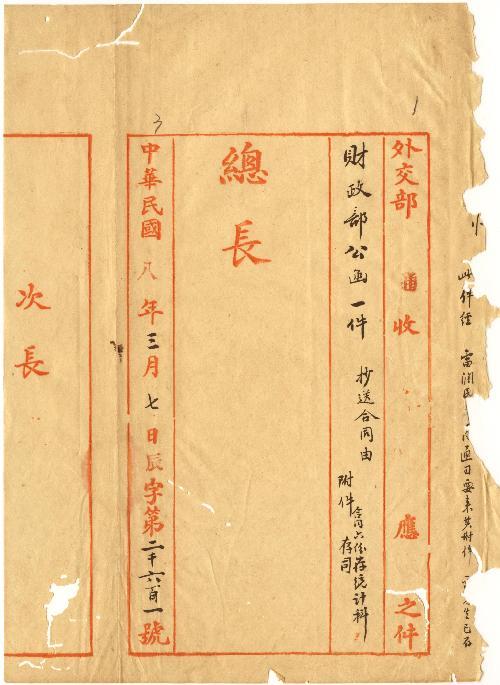 外交部 通 收 應 之件
財政部公函一件 抄送合同由
附件 合同六份存統計科
存司
總長
中華民國八年三月七日辰字第二千六百一號
次長
此件經
1
3